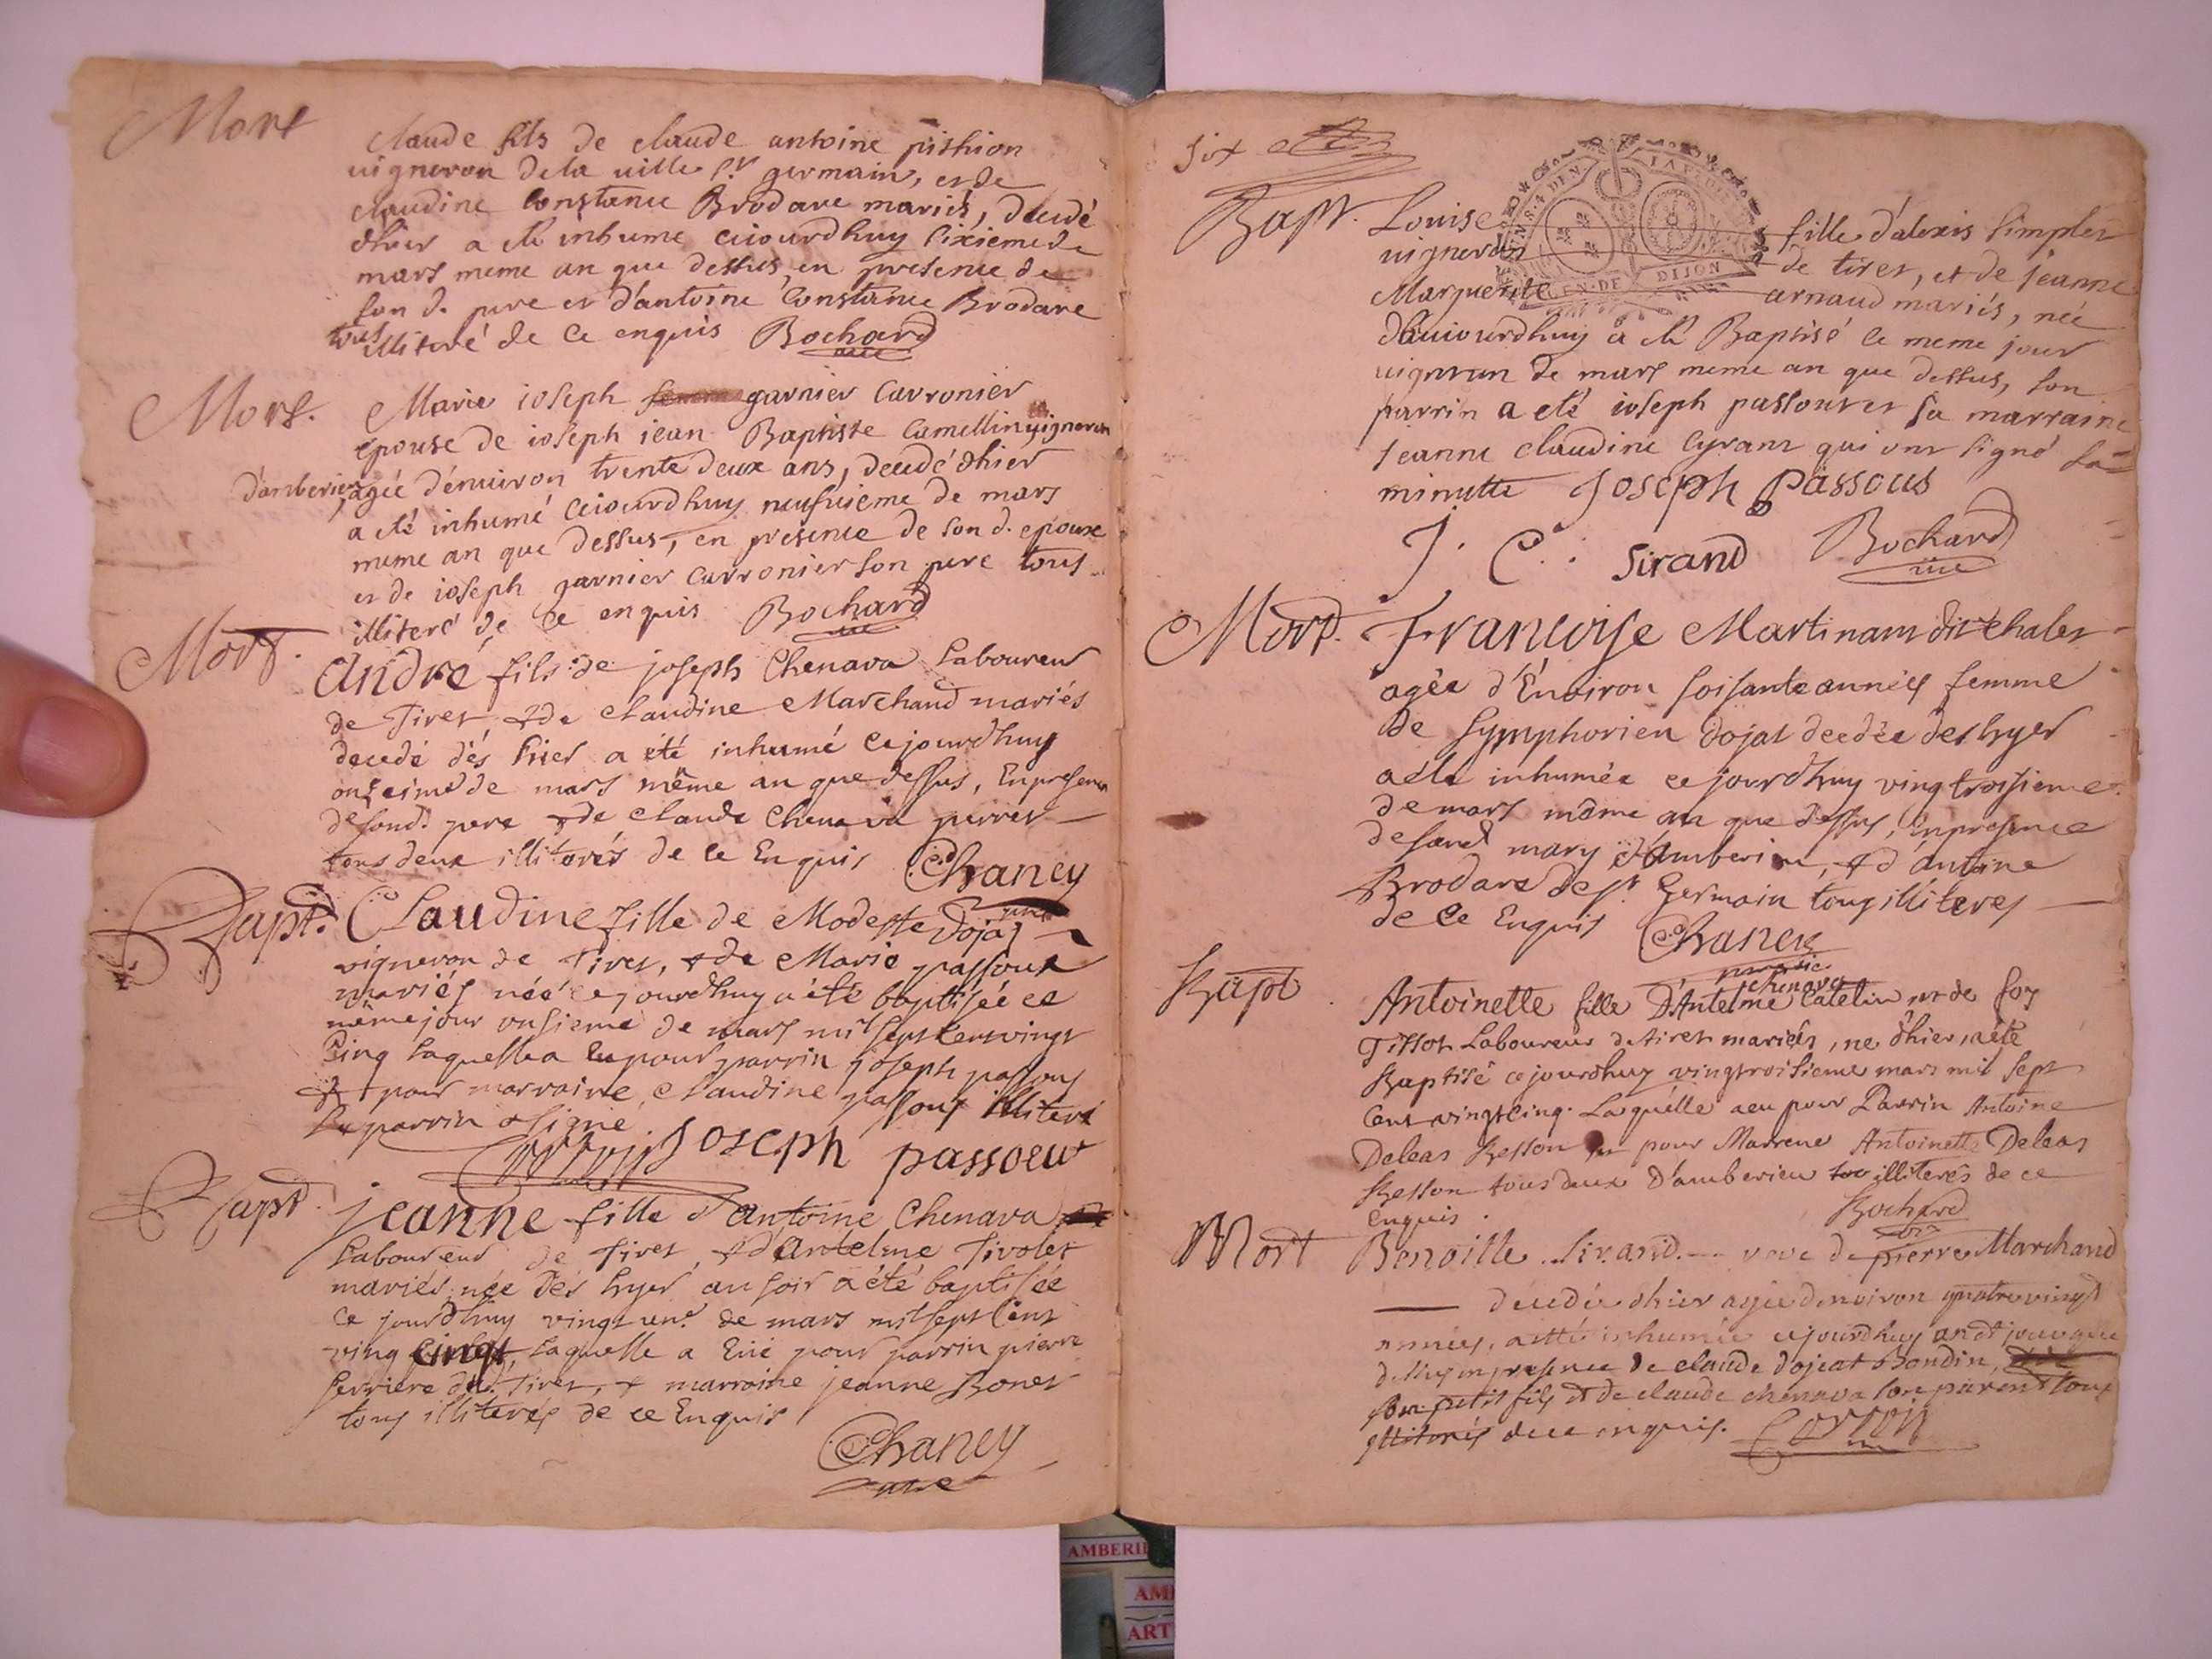 Mort
Claude fils de claude antoine pithion
vigneron de la ville St germain, et de
claudine Constance Brodare mariés, decedé
dhier a eté inhumé cejourdhuy sixieme de
mars meme an que dessus, en presence de
son d. pere et d'antoine Constance Brodare
tous illiteré de ce enquis Bochard
vic
Mort. Marie ioseph garnier Carronier
epouse de ioseph jean Baptiste Camellin vigneron
d'amberieu, agée d'enuiron trente deux ans, decedé dhier
a eté inhumé cejourdhuy neufuieme de mars
meme an que dessus, en presence de son d. epoux
et de ioseph garnier Carronier son pere tous
illiteré de ce enquis Bochard
vic
Mort. André fils de joseph Chenava Laboureur
de Tiret & de Claudine Marchand mariés
decedé dés hier a été inhumé cejourdhuy
onzeime de mars même an que dessus, En presence
de sond. pere & de Claude Chenava perret
tous deux illiterés de ce Enquis Chaney
Bapt. Claudine fille de Modeste Dojat
vigneron de Tiret, & de Marie passoux
mariés née cejourdhuy a été baptisée ce
même jour onsieme de mars mil sept cens vingt
Cinq laquelle a Eu pour parrin joseph passous
& pour marraine Claudine passoux illiteré
Le parrin a signé
Joseph passout
Bapt. jeanne fille d'antoine Chenava
Laboureur de Tiret, & d'antelme Tivolet
mariés, née dés hyer au soir a été baptisée
ce jourdhuy vingt un.e de mars mil sept Cens
ving cinq, Laquelle a Eüe pour parrin pierre
ferriere du d. Tiret, & marraine jeanne Bonet
tous illiterés de ce Enquis
Chaney
vic
six
Bapt. Louise fille d'alexis simplet
vigneron de tiret, et de jeanne
Marguerite arnaud mariés, née
daujourdhuy a eté Baptisé le meme jour
vignt un de mars meme an que dessus, son
parrin a eté ioseph passouret sa marraine
jeanne claudine Cyrant qui ont signé la
minutte Joseph passous
J. C. sirand Bochard
vic
GEN. DE DIJON
Mort. Francoise Martinant dit chalet
agée d'Environ soisante années femme
de Symphorien Dojat decedée des hyer
a été inhumée ce jourdhuy vingtroisieme
de mars même an que dessus, En presence
de sond mary d'Amberieu, & d'antoine
Brodare de St. Germain tous illiteres
de ce Enquis Chaney
Bapt Antoinette fille D'Antelme Catelin chenava et de
Tissot Laboureur de tiret mariés, ne dhier, a eté
Baptisé cejourdhuy vingtroisieme mars mil sept
Cent vingt cinq. Laquelle a eu pour Parrin Antoine
Deleas Besson et pour Marrene Antoinette Deleas
Besson tous deux D'amberieu illiterés de ce
enquis. Bochard
Mort Benoitte Sirand veve de pierre Marchand
decedée dhier agée denviron quatrevingt
années, a etté inhumée cejourdhuy
dessus en presence de claude dojeat Bondin,
son petit fils et de claude chenava son parent tous
illiterés de ce enquis. Corroy
AMBERIE
AM
ART